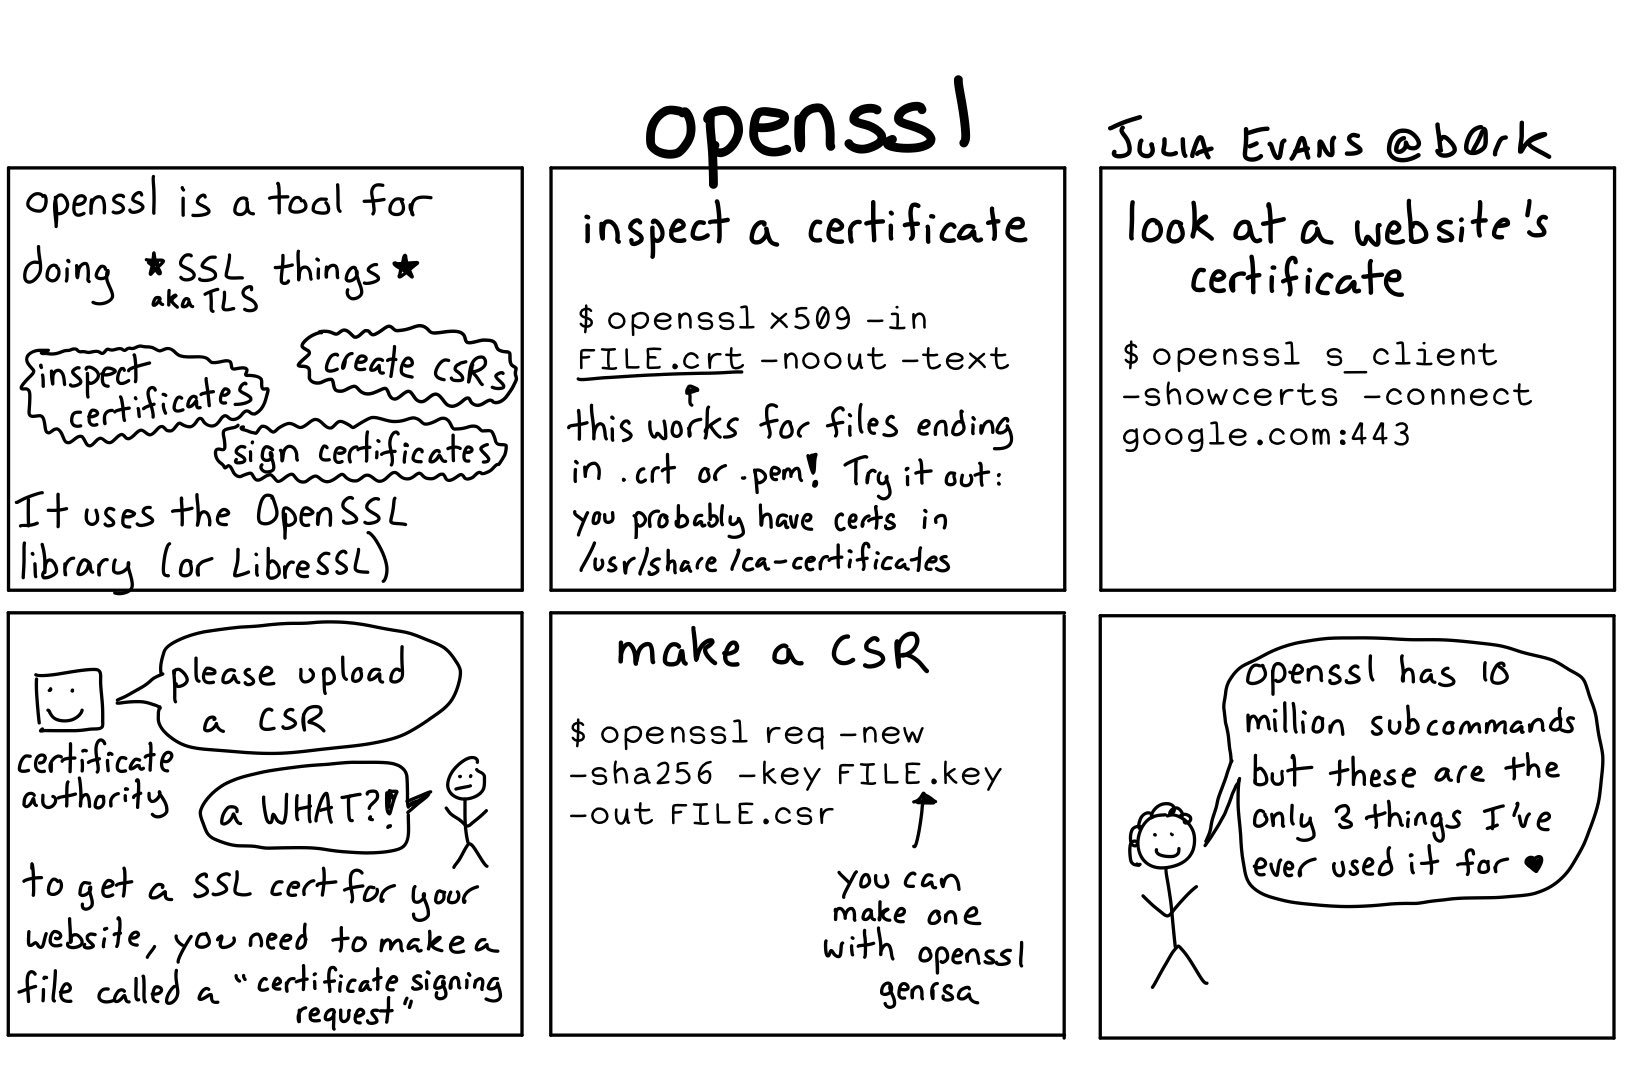 openssl
JULIA EVANS @b0rk
openssl is a tool for
doing ★ SSL things ★
aka TLS
inspect
certificates
create CSRs
sign certificates
It uses the OpenSSL
library (or LibreSSL)
inspect a certificate
$ openssl x509 -in
FILE.crt -noout -text
this works for files ending
in .crt or .pem! Try it out:
you probably have certs in
/usr/share/ca-certificates
look at a website's
certificate
$ openssl s_client
-showcerts -connect
google.com:443
please upload
a CSR
certificate
authority
a WHAT?!
to get a SSL cert for your
website, you need to make a
file called a "certificate signing
request"
make a CSR
$ openssl req -new
-sha256 -key FILE.key
-out FILE.csr
you can
make one
with openssl
genrsa
openssl has 10
million subcommands
but these are the
only 3 things I've
ever used it for ♥